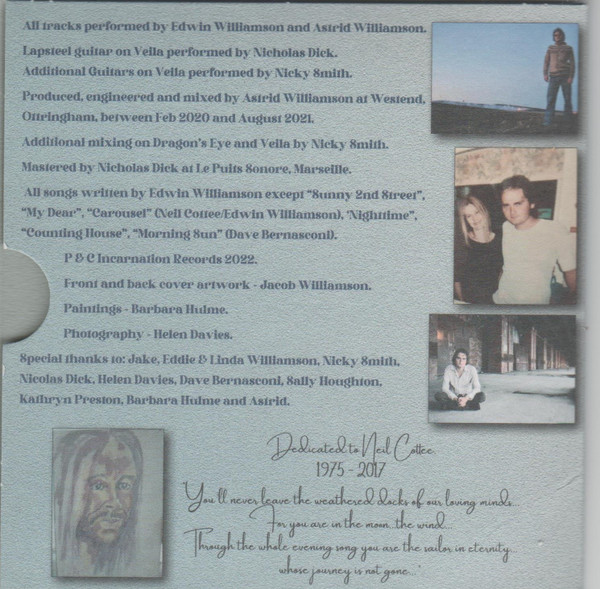 All tracks performed by Edwin Williamson and Astrid Williamson.
Lapsteel guitar on Veila performed by Nicholas Dick.
Additional Guitars on Veila performed by Nicky Smith.
Produced, engineered and mixed by Astrid Williamson at Westend,
Ottringham, between Feb 2020 and August 2021.
Additional mixing on Dragon's Eye and Veila by Nicky Smith.
Mastered by Nicholas Dick at Le Puits Sonore, Marseille.
All songs written by Edwin Williamson except "Sunny 2nd Street",
"My Dear", "Carousel" (Neil Cottee/Edwin Williamson), 'Nighttime",
"Counting House", "Morning Sun" (Dave Bernasconi).
P & C Incarnation Records 2022.
Front and back cover artwork - Jacob Williamson.
Paintings - Barbara Hulme.
Photography - Helen Davies.
Special thanks to: Jake, Eddie & Linda Williamson, Nicky Smith,
Nicolas Dick, Helen Davies, Dave Bernasconi, Sally Houghton,
Kathryn Preston, Barbara Hulme and Astrid.
Dedicated to Neil Cottee
1975 - 2017
'You'll never leave the weathered docks of our loving minds...
For you are in the moon...the wind...
Through the whole evening song you are the sailor in eternity...
whose journey is not gone...'